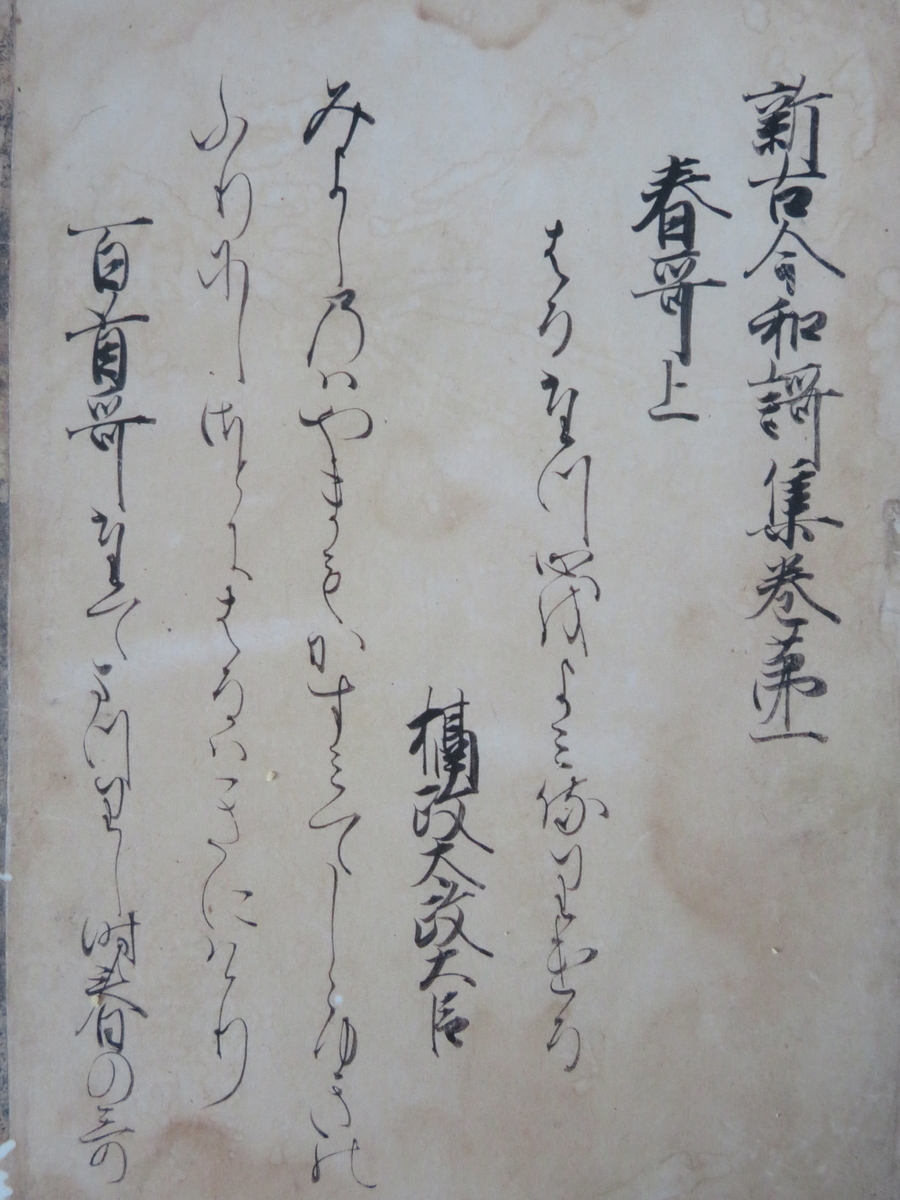 新古今和謌集巻第一
春哥上
はるたつ心をよみ侍りける
攝政太政大臣
みよし乃ハやまもかすみてしらゆきの
ふりにしさとにはるハきにけり
百首哥たてまつりし時春の哥